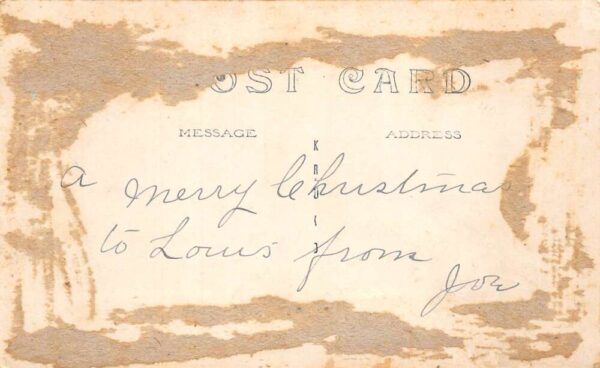 OST CARD
MESSAGE ADDRESS
a Merry Christmas
to Louis from
Joe